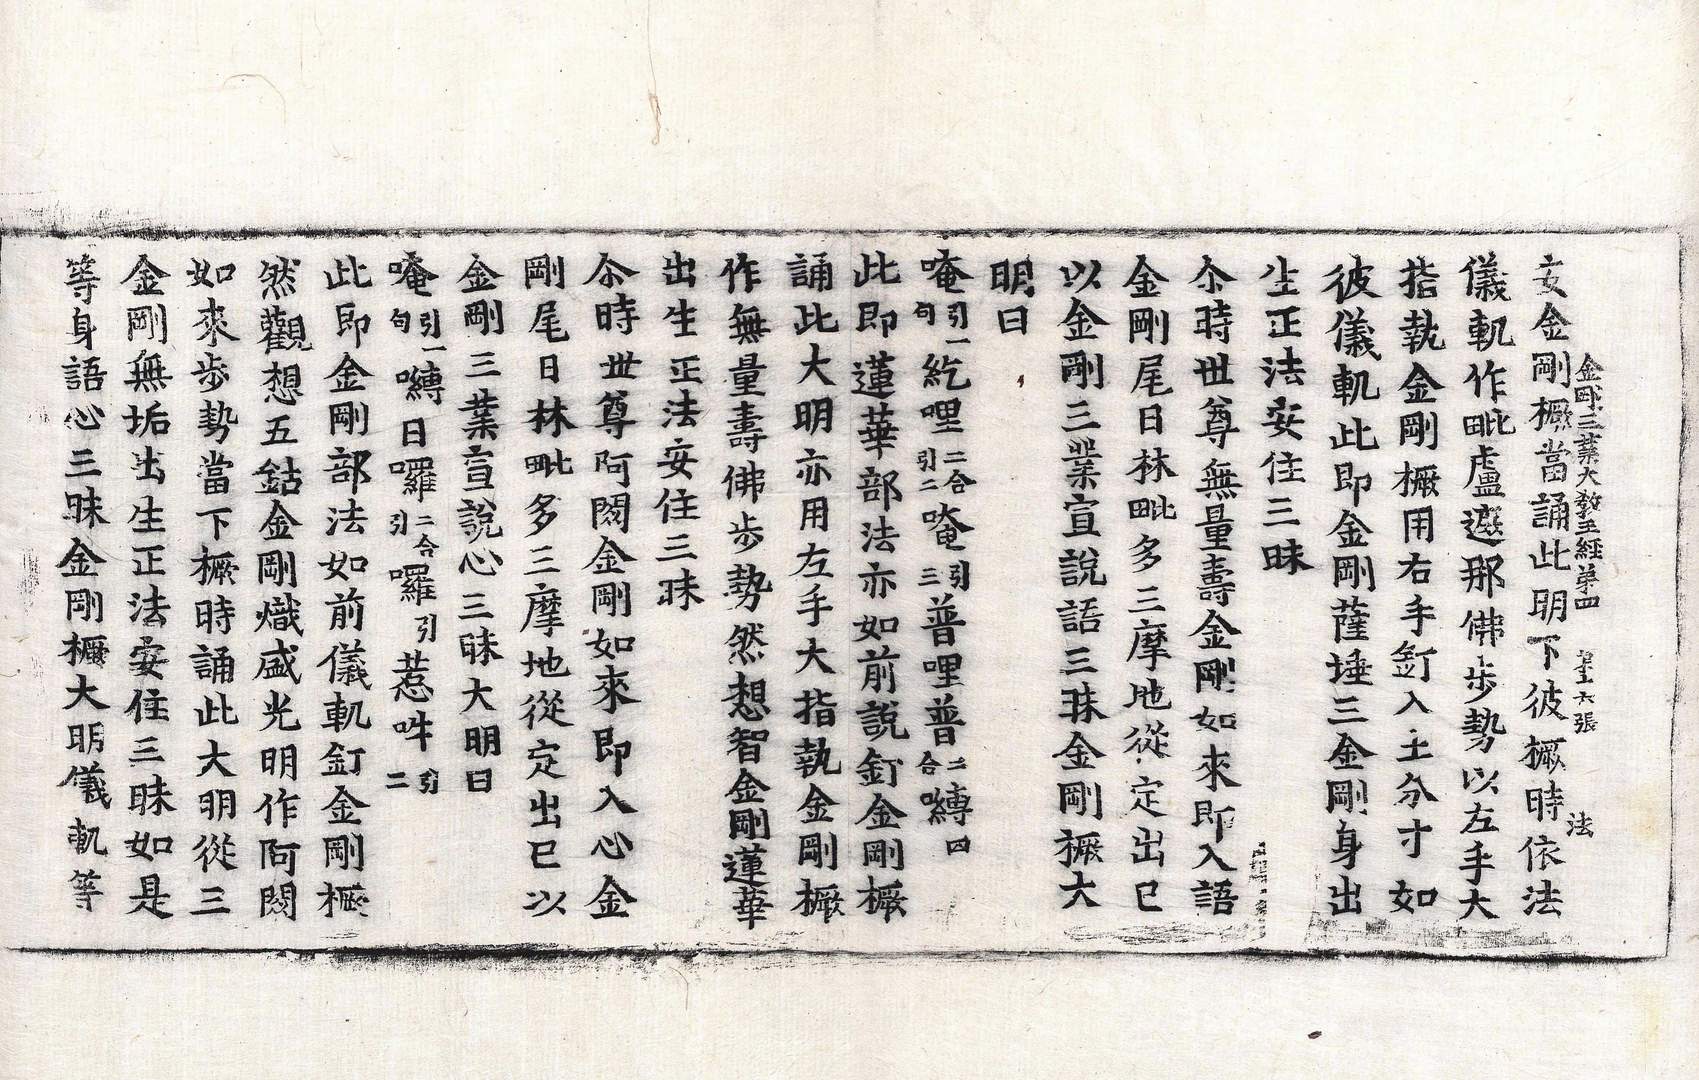 金剛三業大教王經第四 第十六張 法
安金剛橛當誦此明下彼橛時依法
儀軌作毗盧遮那佛步勢以左手大
指執金剛橛用右手釘入土分寸如
彼儀軌此即金剛薩埵三金剛身出
生正法安住三昧
尒時世尊無量壽金剛如來即入語
金剛尾日林毗多三摩地從定出已
以金剛三業宣說語三昧金剛橛大
明曰
唵引一句紇哩二合引二唵引三普哩普二合嚩四
此即蓮華部法亦如前說釘金剛橛
誦此大明亦用左手大指執金剛橛
作無量壽佛步勢然想智金剛蓮華
出生正法安住三昧
尒時世尊阿閦金剛如來即入心金
剛尾日林毗多三摩地從定出已以
金剛三業宣說心三昧大明曰
唵引一句嚩日囉二合引囉引惹吽引二
此即金剛部法如前儀軌釘金剛橛
然觀想五鈷金剛熾盛光明作阿閦
如來步勢當下橛時誦此大明從三
金剛無垢出生正法安住三昧如是
等身語心三昧金剛橛大明儀軌等